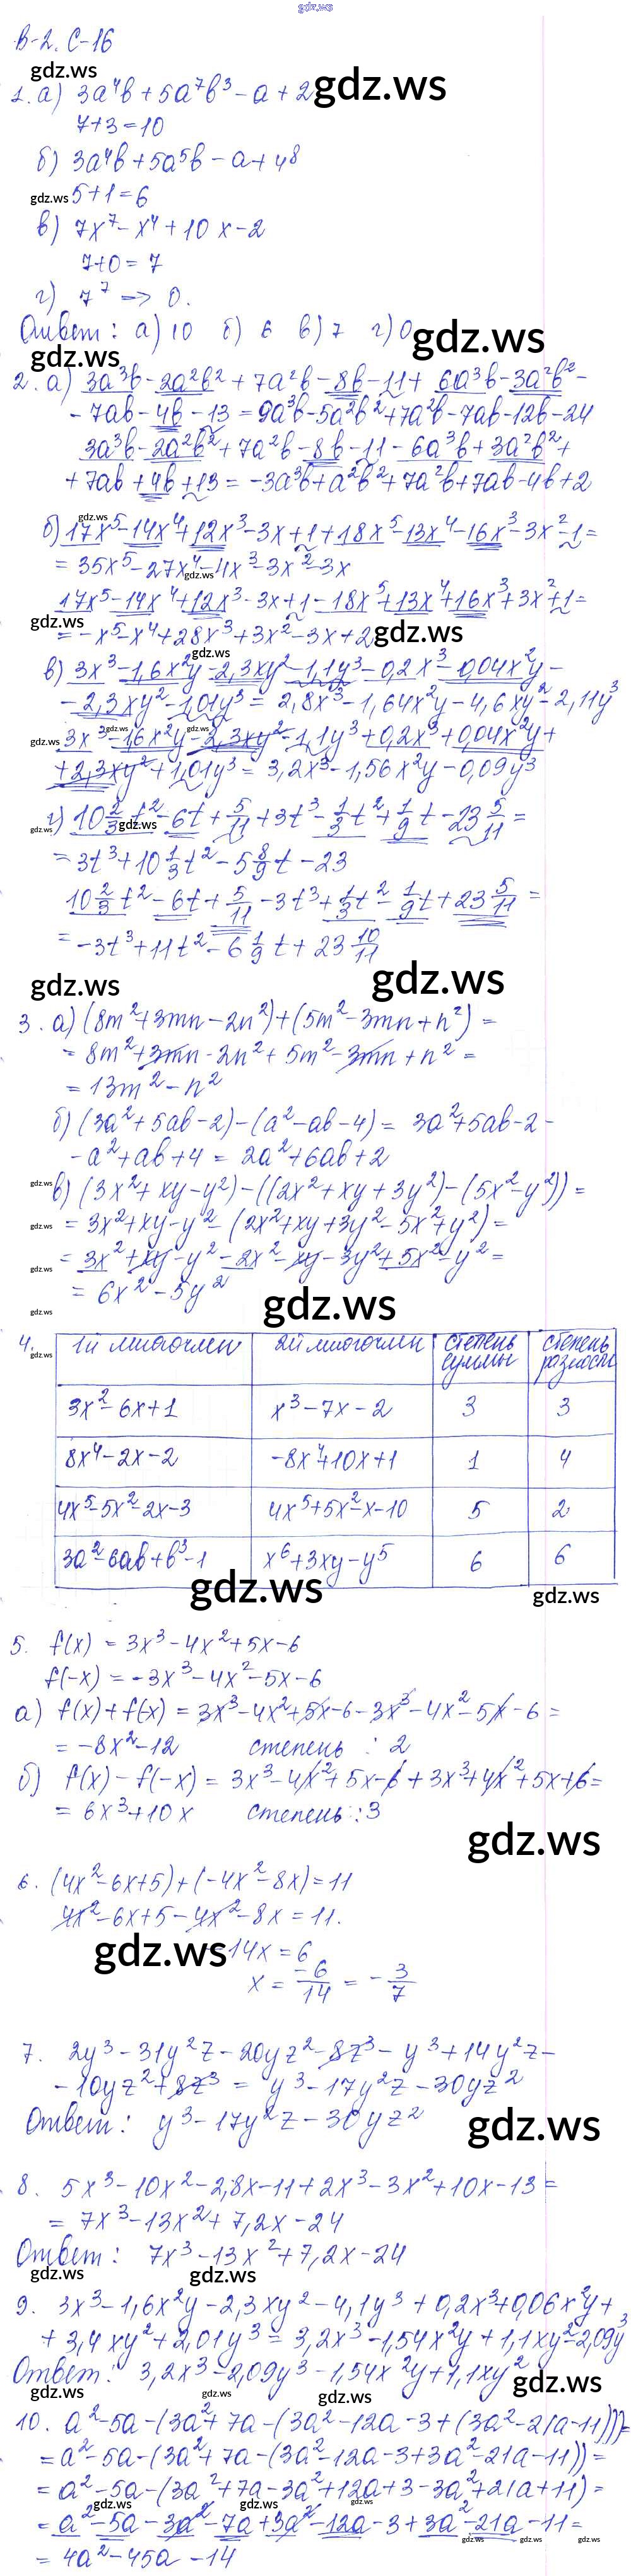 gdz.ws
В-2. С-16
gdz.ws
1. а) 3a⁴b + 5a⁷b³ - a + 2 gdz.ws
7+3=10
б) 3a⁴b + 5a⁵b - a + 4⁸
gdz.ws 5+1=6
в) 7x⁷ - x⁴ + 10x - 2
7+0=7
г) 7⁷ => 0.
Ответ: а) 10 б) 6 в) 7 г) 0 gdz.ws
gdz.ws
2. а) 3a³b - 2a²b² + 7a²b - 8b - 11 + 6a³b - 3a²b² -
- 7ab - 4b - 13 = 9a³b - 5a²b² + 7a²b - 7ab - 12b - 24
3a³b - 2a²b² + 7a²b - 8b - 11 - 6a³b + 3a²b² +
+ 7ab + 4b + 13 = -3a³b + a²b² + 7a²b + 7ab - 4b + 2
gdz.ws
б) 17x⁵ - 14x⁴ + 12x³ - 3x + 1 + 18x⁵ - 13x⁴ - 16x³ - 3x² - 1 =
= 35x⁵ - 27x⁴ - 4x³ - 3x² - 3x
gdz.ws
17x⁵ - 14x⁴ + 12x³ - 3x + 1 - 18x⁵ + 13x⁴ + 16x³ + 3x² + 1 =
gdz.ws
= -x⁵ - x⁴ + 28x³ + 3x² - 3x + 2 gdz.ws
gdz.ws
в) 3x³ - 1,6x²y - 2,3xy² - 1,1y³ - 0,2x³ - 0,04x²y -
- 2,3xy² - 1,01y³ = 2,8x³ - 1,64x²y - 4,6xy² - 2,11y³
gdz.ws gdz.ws
gdz.ws 3x³ - 1,6x²y - 2,3xy² - 1,1y³ + 0,2x³ + 0,04x²y +
+ 2,3xy² + 1,01y³ = 3,2x³ - 1,56x²y - 0,09y³
г) 10 2/3 t² - 6t + 5/11 + 3t³ - 1/3 t² + 1/9 t - 23 5/11 =
gdz.ws gdz.ws
= 3t³ + 10 1/3 t² - 5 8/9 t - 23
10 2/3 t² - 6t + 5/11 - 3t³ + 1/3 t² - 1/9 t + 23 5/11 =
= -3t³ + 11t² - 6 1/9 t + 23 10/11
gdz.ws gdz.ws
3. а) (8m² + 3mn - 2n²) + (5m² - 3mn + n²) =
= 8m² + 3mn - 2n² + 5m² - 3mn + n² =
= 13m² - n²
б) (3a² + 5ab - 2) - (a² - ab - 4) = 3a² + 5ab - 2 -
- a² + ab + 4 = 2a² + 6ab + 2
gdz.ws в) (3x² + xy - y²) - ((2x² + xy + 3y²) - (5x² - y²)) =
gdz.ws = 3x² + xy - y² - (2x² + xy + 3y² - 5x² + y²) =
gdz.ws = 3x² + xy - y² - 2x² - xy - 3y² + 5x² - y² =
= 6x² - 5y²
gdz.ws gdz.ws
4. gdz.ws 1й многочлен 2й многочлен степень суммы степень разности
3x² - 6x + 1 x³ - 7x - 2 3 3
8x⁴ - 2x - 2 -8x⁴ + 10x + 1 1 4
4x⁵ - 5x² - 2x - 3 4x⁵ + 5x² - x - 10 5 2
3a² - 6ab + b³ - 1 x⁶ + 3xy - y⁵ 6 6
gdz.ws gdz.ws
5. f(x) = 3x³ - 4x² + 5x - 6
f(-x) = -3x³ - 4x² - 5x - 6
а) f(x) + f(-x) = 3x³ - 4x² + 5x - 6 - 3x³ - 4x² - 5x - 6 =
= -8x² - 12 степень : 2
б) f(x) - f(-x) = 3x³ - 4x² + 5x - 6 + 3x³ + 4x² + 5x + 6 =
= 6x³ + 10x степень : 3
gdz.ws
6. (4x² - 6x + 5) + (-4x² - 8x) = 11
4x² - 6x + 5 - 4x² - 8x = 11.
gdz.ws - 14x = 6
x = -6/14 = -3/7
7. 2y³ - 31y²z - 20yz² - 8z³ - y³ + 14y²z -
- 10yz² + 8z³ = y³ - 17y²z - 30yz²
Ответ: y³ - 17y²z - 30yz² gdz.ws
8. 5x³ - 10x² - 2,8x - 11 + 2x³ - 3x² + 10x - 13 =
= 7x³ - 13x² + 7,2x - 24
Ответ: 7x³ - 13x² + 7,2x - 24
gdz.ws gdz.ws
9. 3x³ - 1,6x²y - 2,3xy² - 4,1y³ + 0,2x³ + 0,06x²y +
+ 3,4xy² + 2,01y³ = 3,2x³ - 1,54x²y + 1,1xy² - 2,09y³
Ответ: 3,2x³ - 2,09y³ - 1,54x²y + 1,1xy²
gdz.ws gdz.ws gdz.ws gdz.ws
10. a² - 5a - (3a² + 7a - (3a² - 12a - 3 + (3a² - 21a - 11))) =
= a² - 5a - (3a² + 7a - (3a² - 12a - 3 + 3a² - 21a - 11)) =
= a² - 5a - (3a² + 7a - 3a² + 12a + 3 - 3a² + 21a + 11) =
gdz.ws gdz.ws gdz.ws
= a² - 5a - 3a² - 7a + 3a² - 12a - 3 + 3a² - 21a - 11 =
gdz.ws gdz.ws gdz.ws
= 4a² - 45a - 14